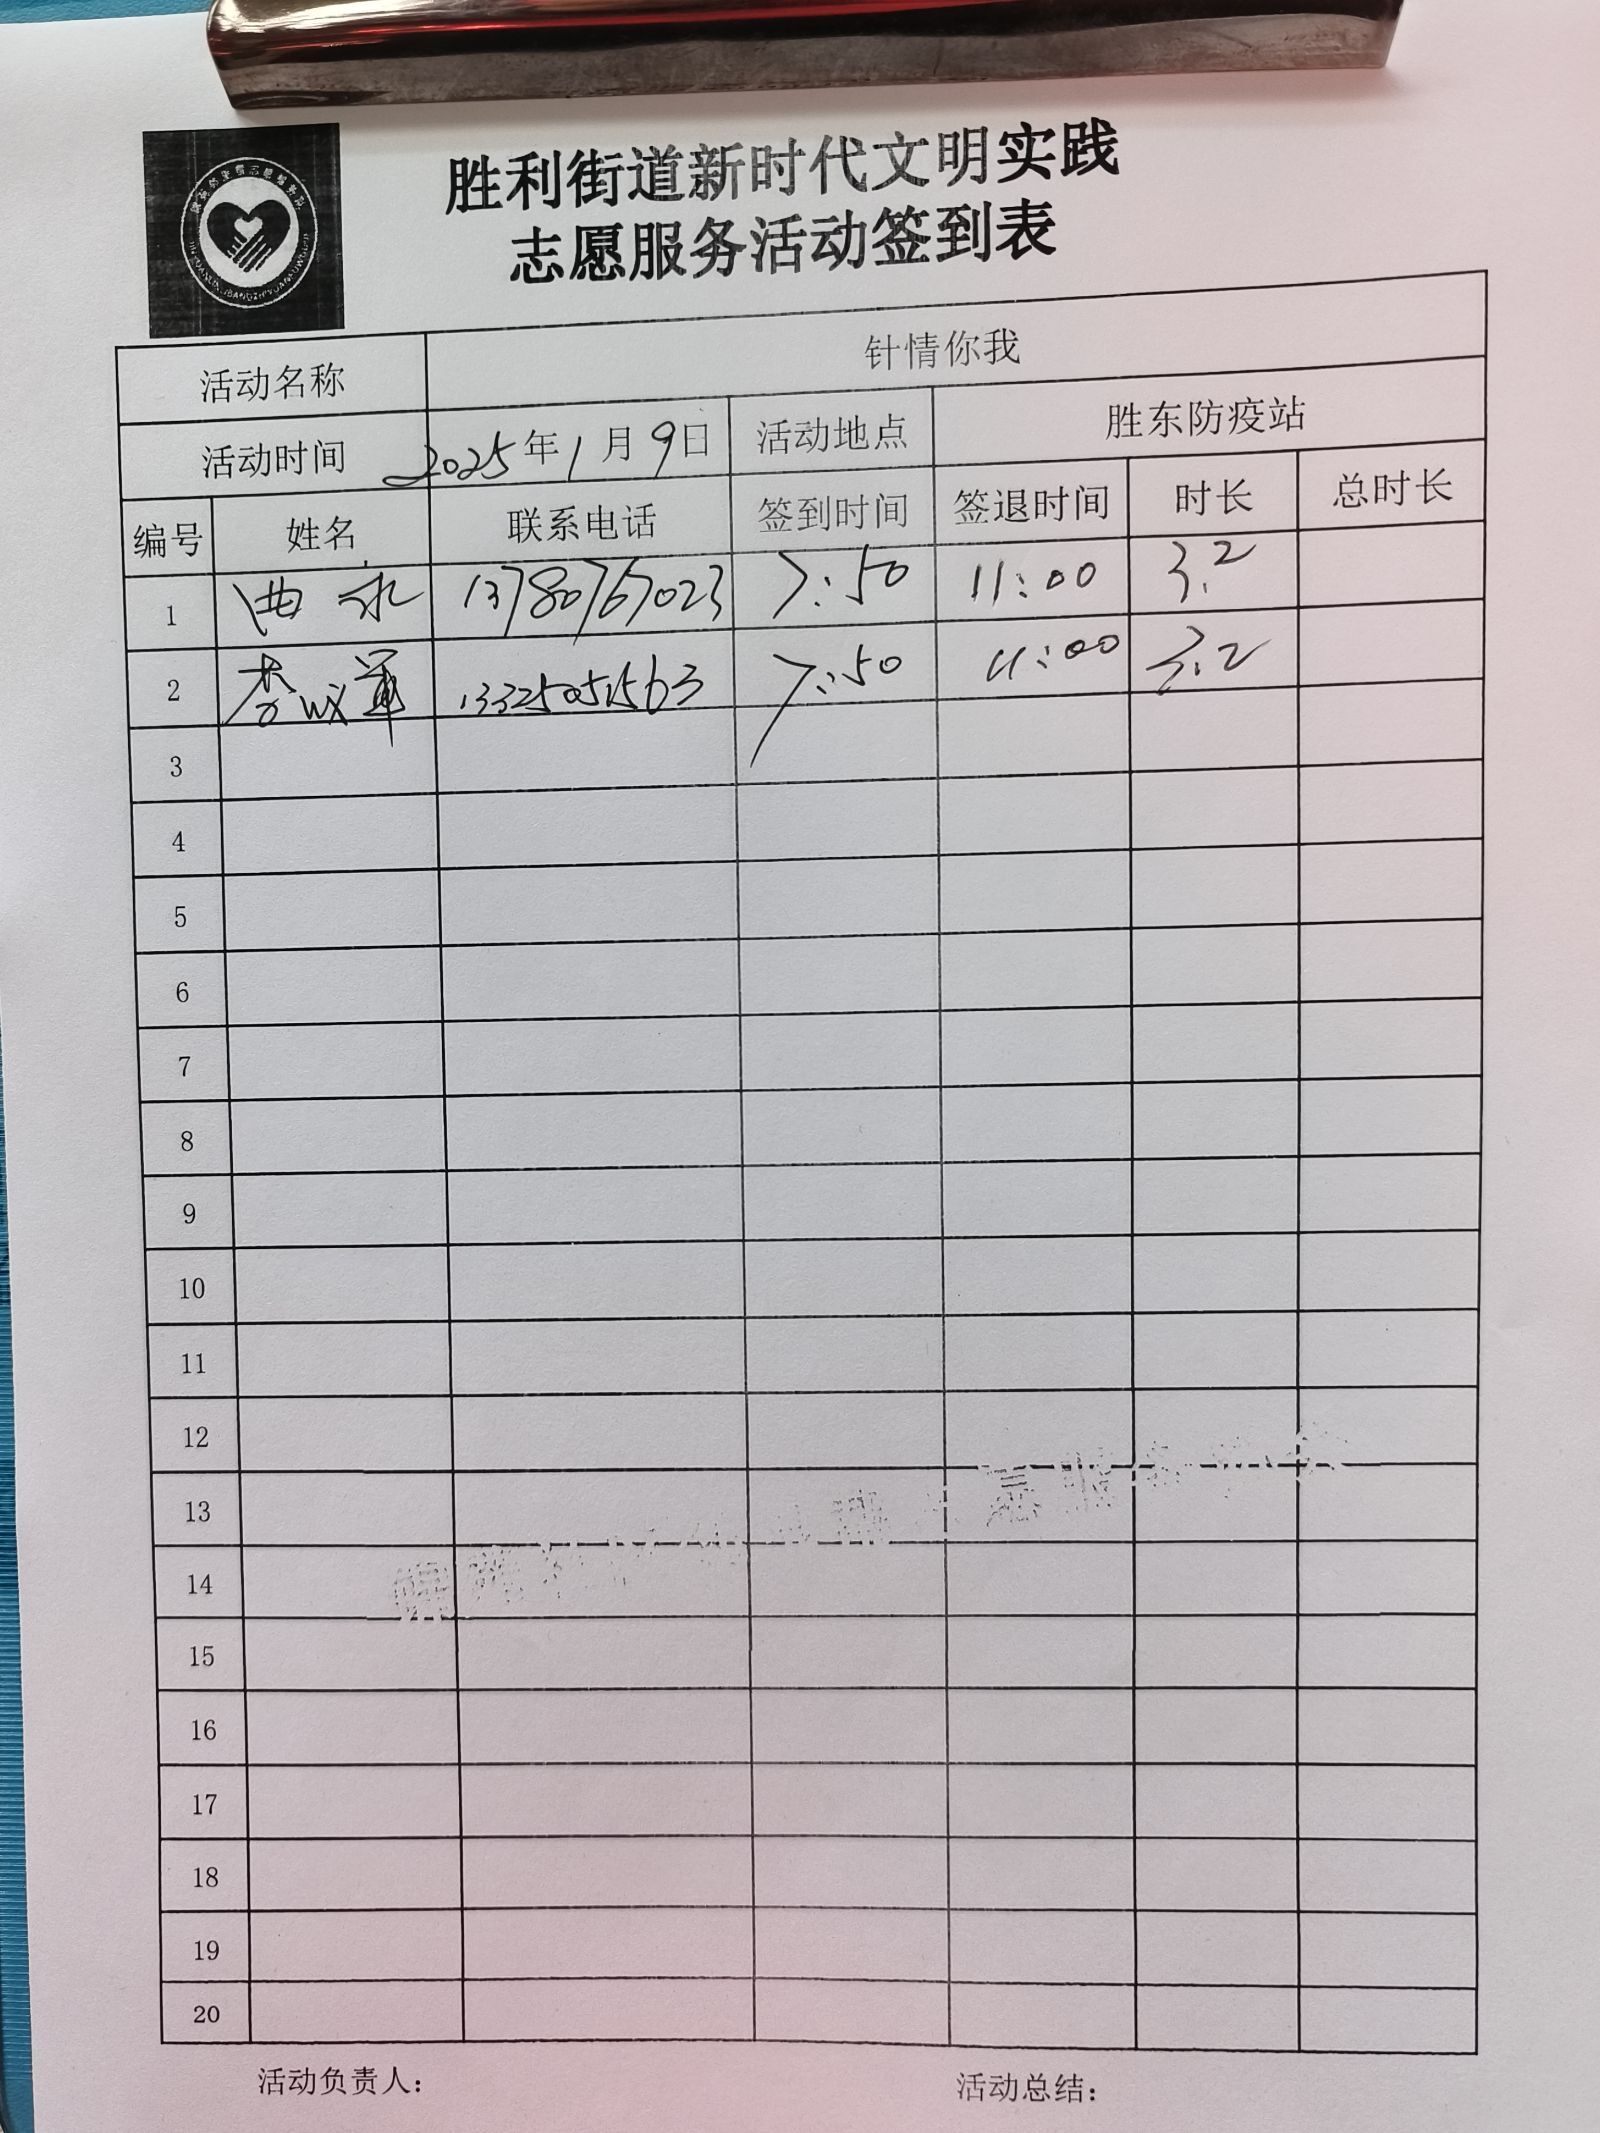 胜利街道新时代文明实践
志愿服务活动签到表
活动名称 针情你我
活动时间 2025年1月9日 活动地点 胜东防疫站
编号 姓名 联系电话 签到时间 签退时间 时长 总时长
1 曲 13780767023 7:50 11:00 3.2
2 李 军 13325051563 7:50 11:00 3.2
3
4
5
6
7
8
9
10
11
12
13
14
15
16
17
18
19
20
活动负责人: 活动总结: